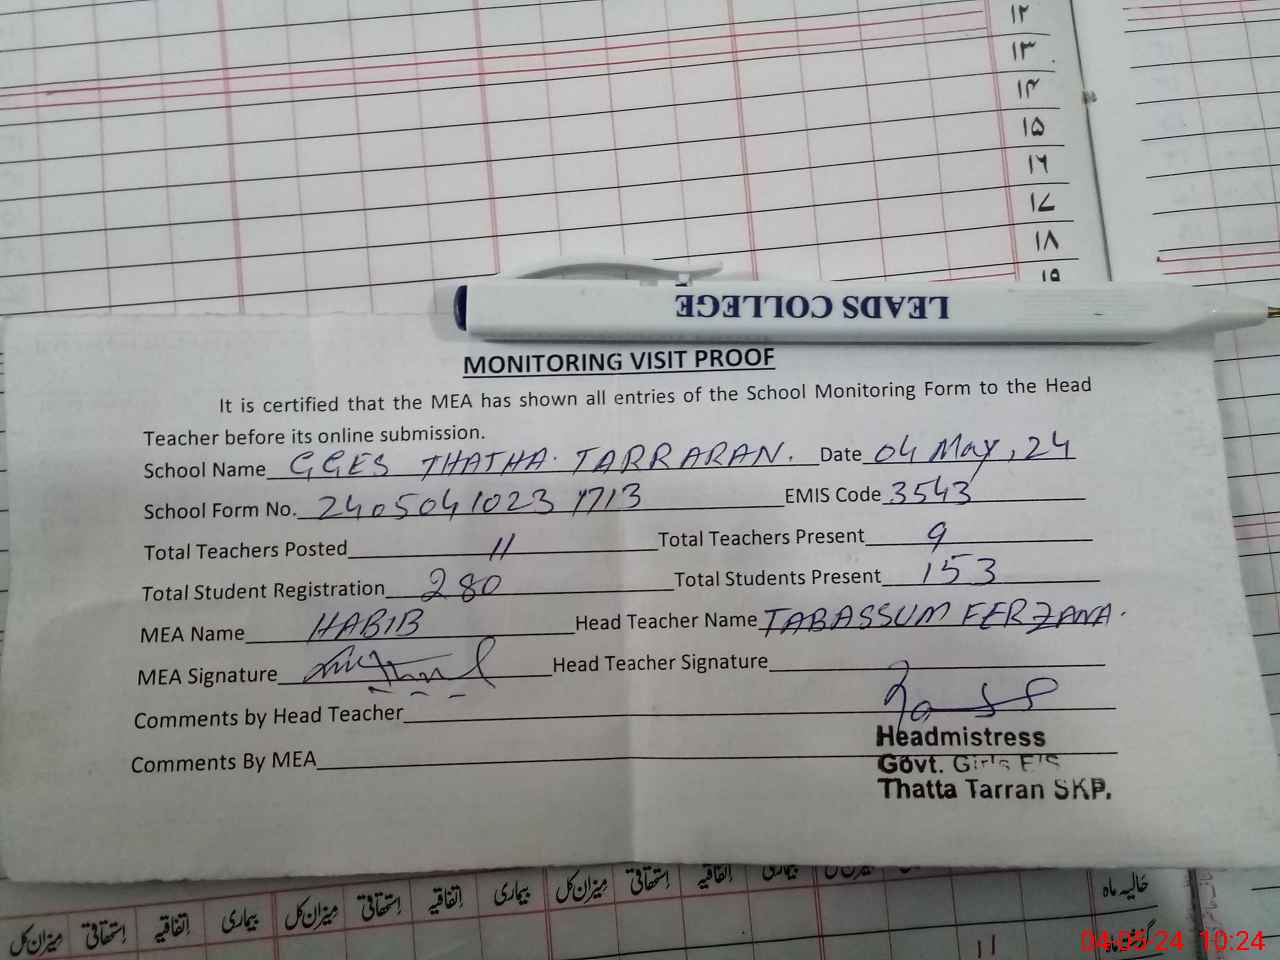 ۱۲
۱۳
۱۴
۱۵
۱۶
۱۷
۱۸
۱۹
LEADS COLLEGE
MONITORING VISIT PROOF
It is certified that the MEA has shown all entries of the School Monitoring Form to the Head
Teacher before its online submission.
School Name GGES THATHA TARRARAN. Date 04 May, 24
School Form No. 24050410231713 EMIS Code 3543
Total Teachers Posted 11 Total Teachers Present 9
Total Student Registration 280 Total Students Present 153
MEA Name HABIB Head Teacher Name TABASSUM FERZANA.
MEA Signature Head Teacher Signature
Comments by Head Teacher
Headmistress
Comments By MEA
Govt. Girls E/S
Thatta Tarran SKP.
حالیہ ماہ میزان کل اِستحقاقی اِتفاقیہ بیماری میزان کل اِستحقاقی اِتفاقیہ بیماری میزان کل
۱۱
04-05-24 10:24